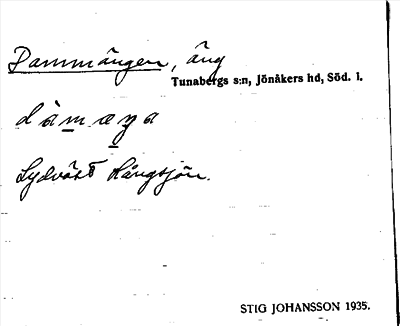 Dammängen, äng
Tunabergs s:n, Jönåkers hd, Söd. l.
Sydväst Hångsjön.
STIG JOHANSSON 1935.